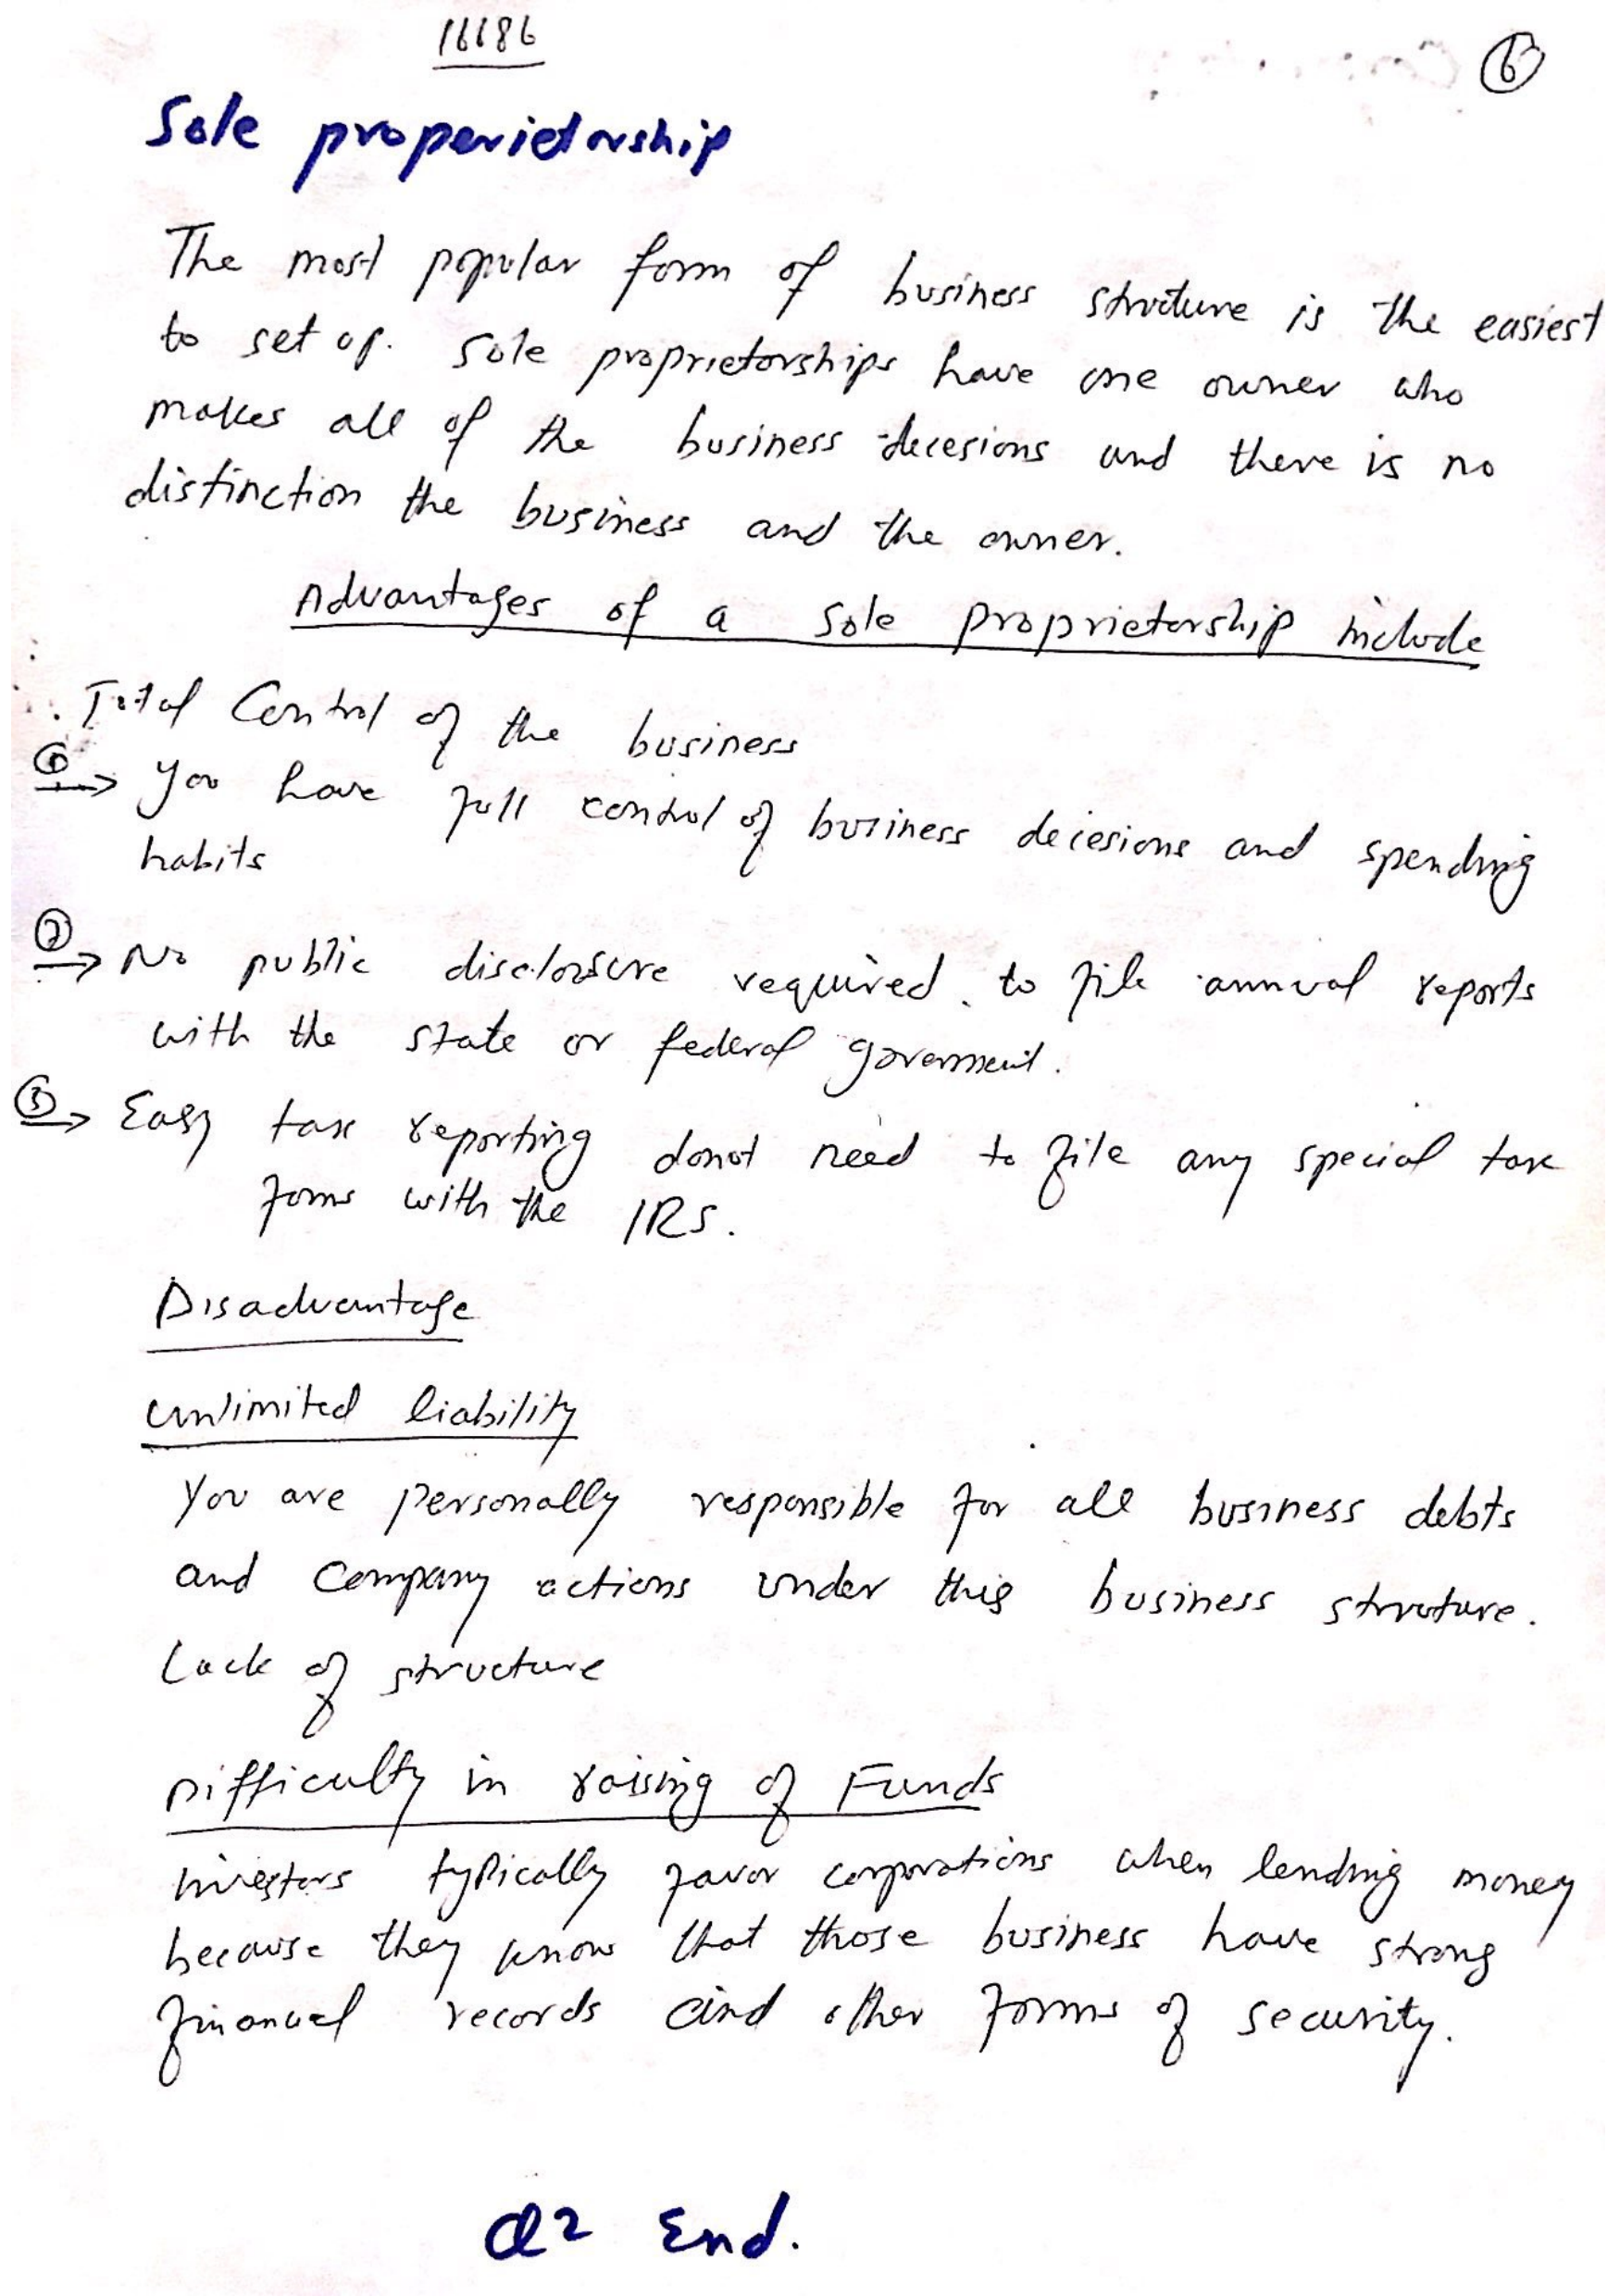 16686
6
Sole properietorship
The most popular form of business structure is the easiest
to set up. Sole proprietorships have one owner who
makes all of the business decesions and there is no
distinction the business and the owner.
Advantages of a Sole proprietorship include
Total Control of the business
① → You have full control of business decesions and spending
habits
② → No public disclosure required. to file annual reports
with the state or federal goverment.
③ → Easy tax reporting donot need to file any special tax
forms with the IRS.
Disadvantage
Unlimited liability
You are personally responsible for all business debts
and Company actions under this business structure.
Lack of structure
Difficulty in raising of Funds
Investors typically favor corporations when lending money
because they know that those business have strong
financial records and other forms of security.
Q2 End.